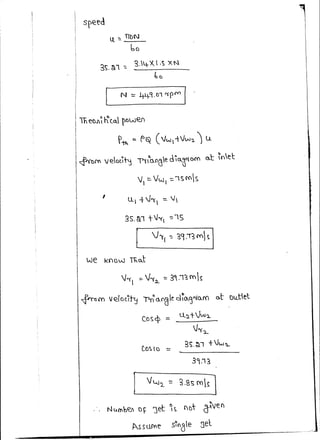 speed
u = πDN
60
35.27 = 3.14 X 1.5 X N
60
N = 449.01 rpm
Theoritical power
Pth = ρQ (Vw1 + Vw2) u
From velocity Triangle diagram at inlet
V1 = Vw1 = 75 m/s
u1 + Vr1 = V1
35.27 + Vr1 = 75
Vr1 = 39.73 m/s
we know That
Vr1 = Vr2 = 39.73 m/s
From velocity Triangle diagram at outlet
Cosφ = u2 + Vw2
Vr2
Cos10 = 35.27 + Vw2
39.73
Vw2 = 3.85 m/s
∴ Number of jet is not given
Assume single jet